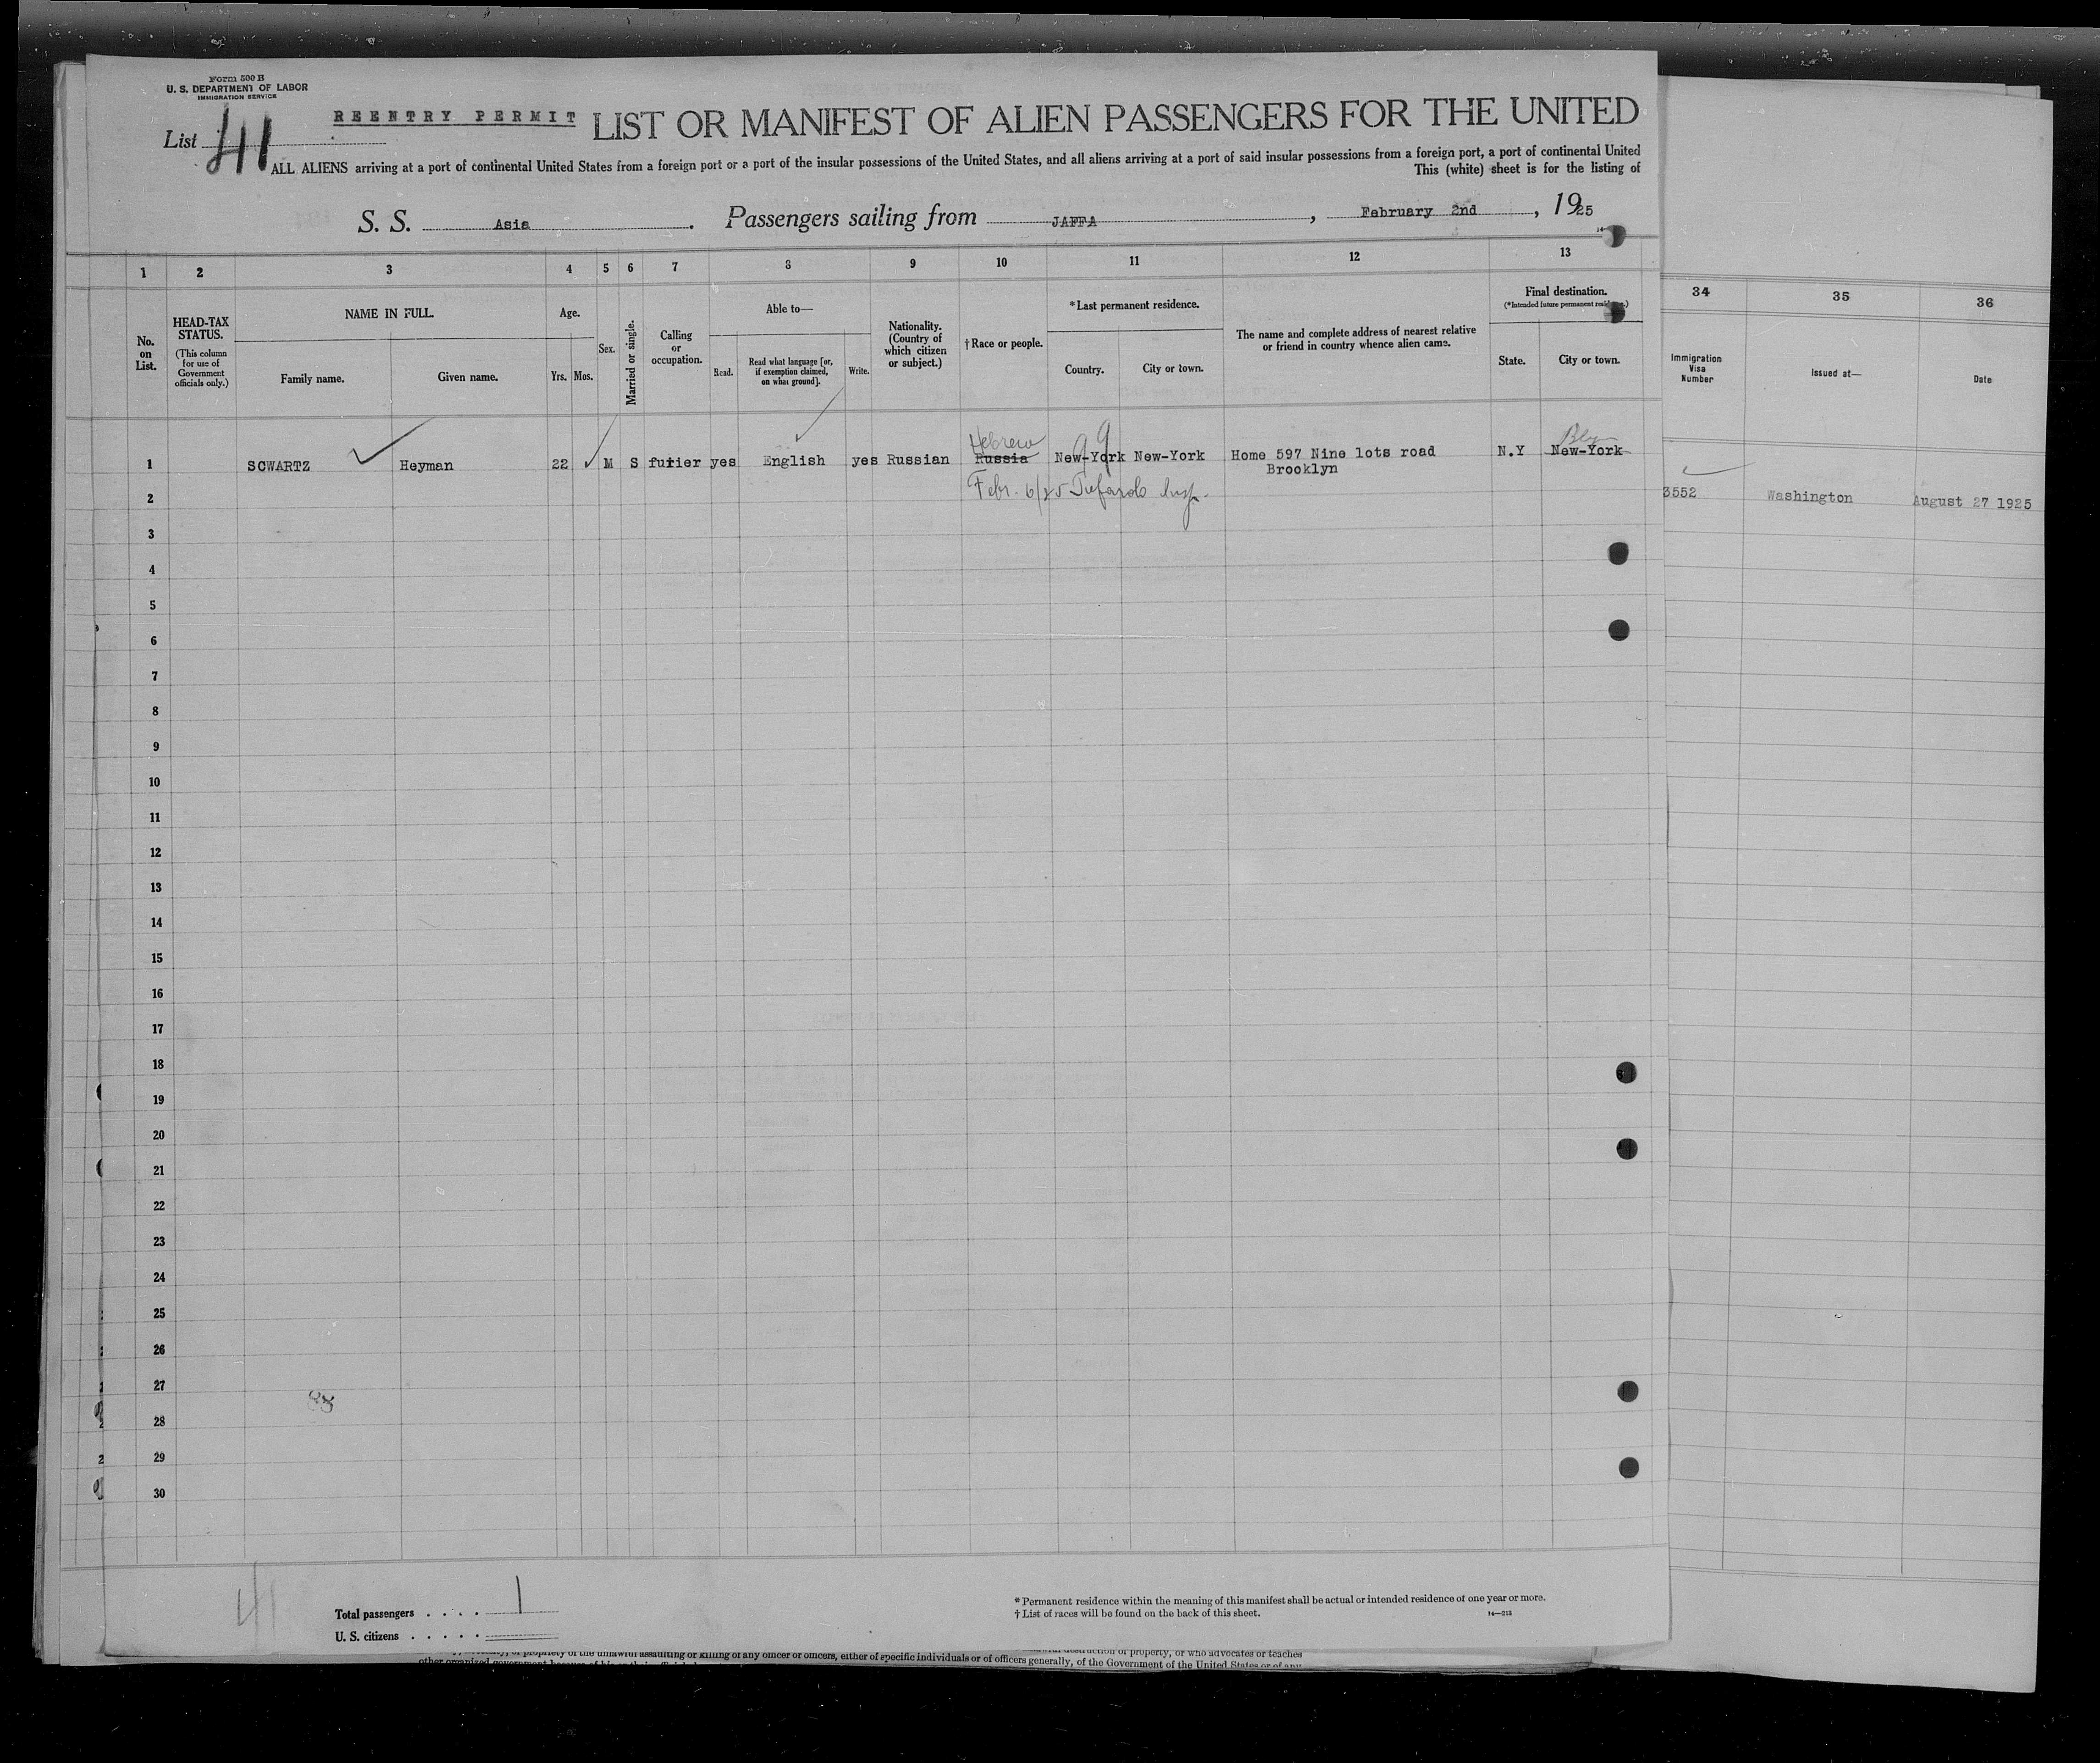 Form 500 B
U. S. DEPARTMENT OF LABOR
IMMIGRATION SERVICE
List 41
REENTRY PERMIT
LIST OR MANIFEST OF ALIEN PASSENGERS FOR THE UNITED
ALL ALIENS arriving at a port of continental United States from a foreign port or a port of the insular possessions of the United States, and all aliens arriving at a port of said insular possessions from a foreign port, a port of continental United
This (white) sheet is for the listing of
S. S. Asia. Passengers sailing from JAFFA, February 2nd, 1925
1 2 3 4 5 6 7 8 9 10 11 12 13
34 35 36
No. on List.
HEAD-TAX STATUS.
(This column for use of Government officials only.)
NAME IN FULL.
Family name. Given name.
Age.
Yrs. Mos.
Sex.
Married or single.
Calling or occupation.
Able to—
Read. Read what language [or, if exemption claimed, on what ground]. Write.
Nationality. (Country of which citizen or subject.)
†Race or people.
*Last permanent residence.
Country. City or town.
The name and complete address of nearest relative or friend in country whence alien came.
Final destination.
(*Intended future permanent residence.)
State. City or town.
Immigration Visa Number
Issued at—
Date
Hebrew
1 SCWARTZ Heyman 22 M S furier yes English yes Russian Russia New-York New-York Home 597 Nine lots road N.Y New-York
Brooklyn
2 Febr. 6/25 Insp.
3552 Washington August 27 1925
3
4
5
6
7
8
9
10
11
12
13
14
15
16
17
18
19
20
21
22
23
24
25
26
27
88
28
29
30
41
Total passengers . . . . 1
U. S. citizens . . . . .
* Permanent residence within the meaning of this manifest shall be actual or intended residence of one year or more.
† List of races will be found on the back of this sheet.
14—213
propriety of the unlawful assaulting or killing of any officer or officers, either of specific individuals or of officers generally, of the Government of the United States or of any